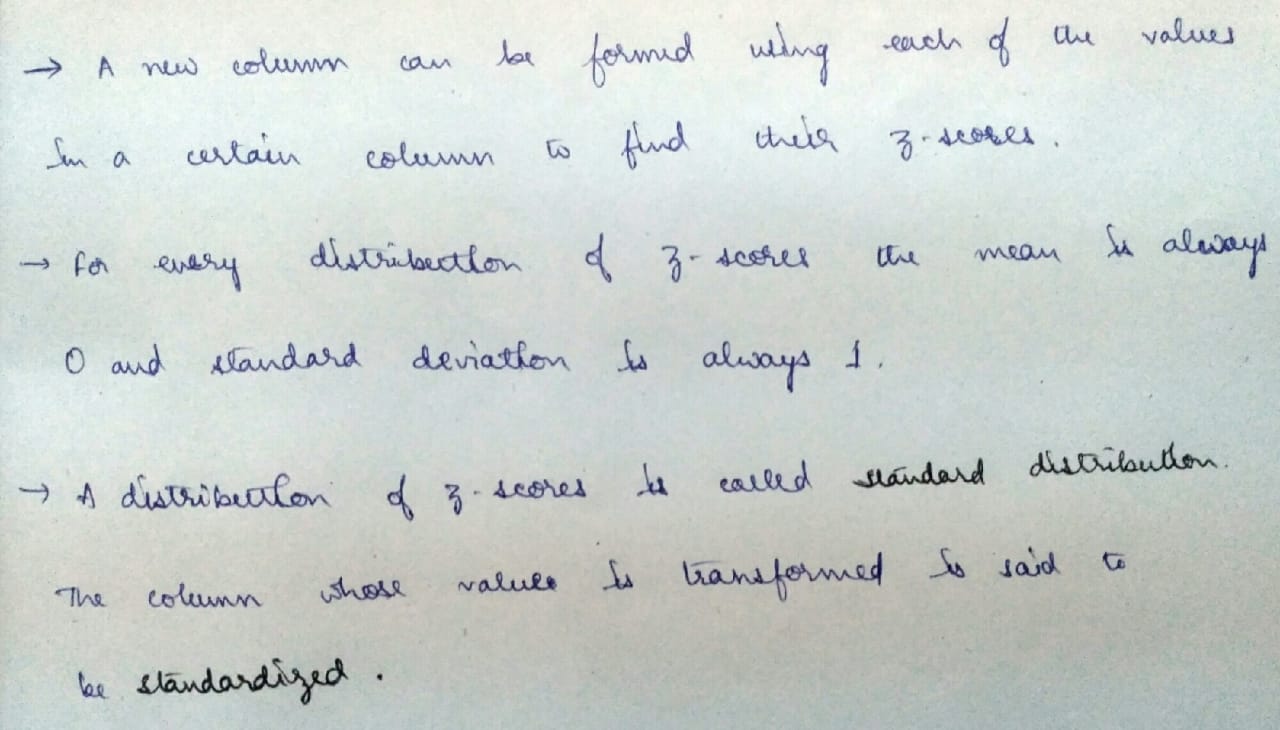 → A new column can be formed using each of the values
In a certain column to find their z-scores.
→ For every distribution of z-scores the mean is always
0 and standard deviation is always 1.
→ A distribution of z-scores is called standard distribution.
The column whose values is transformed is said to
be standardized.